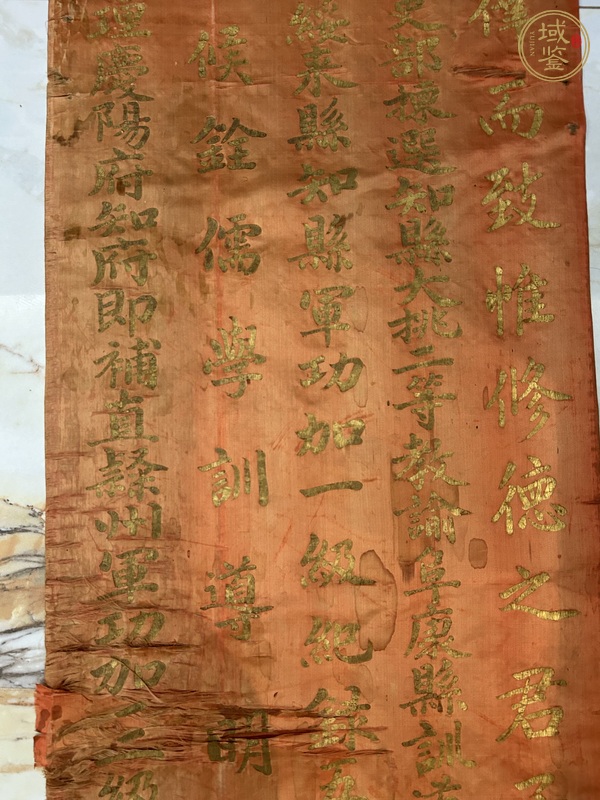 而致惟修德之君
部揀選知縣大挑二等教諭阜康縣訓
綏來縣知縣軍功加一級紀錄
候銓儒學訓導胡
理慶陽府知府即補直隸州軍功加二級
域鑒